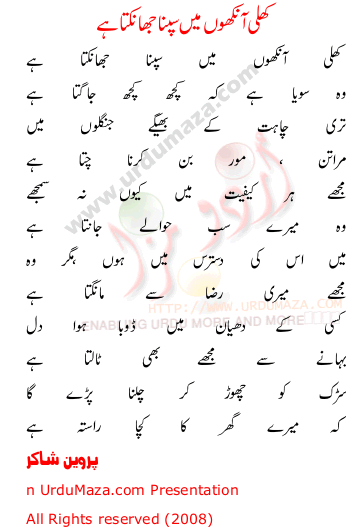 کھلی آنکھوں میں سپنا جھانکتا ہے
کھلی آنکھوں میں سپنا جھانکتا ہے
وہ سویا ہے کہ کچھ کچھ جاگتا ہے
تری چاہت کے بھیگے جنگلوں میں
مراتن ، مور بن کرنا چتا ہے
مجھے ہر کیفیت میں کیوں نہ سمجھے
وہ میرے سب حوالے جانتا ہے
میں اس کی دسترس میں ہوں مگر وہ
مجھے میری رضا سے مانگتا ہے
کسی کے دھیان میں ڈوبا ہوا دل
بہانے سے مجھے بھی ٹالتا ہے
سڑک کو چھوڑ کر چلنا پڑے گا
کہ میرے گھر کا کچا راستہ ہے
پروین شاکر
n UrduMaza.com Presentation
All Rights reserved (2008)
www.urdumaza.com
اُردو مزا
HTTP://WWW.URDUMAZA.COM
ENABLING URDU MORE AND MORE